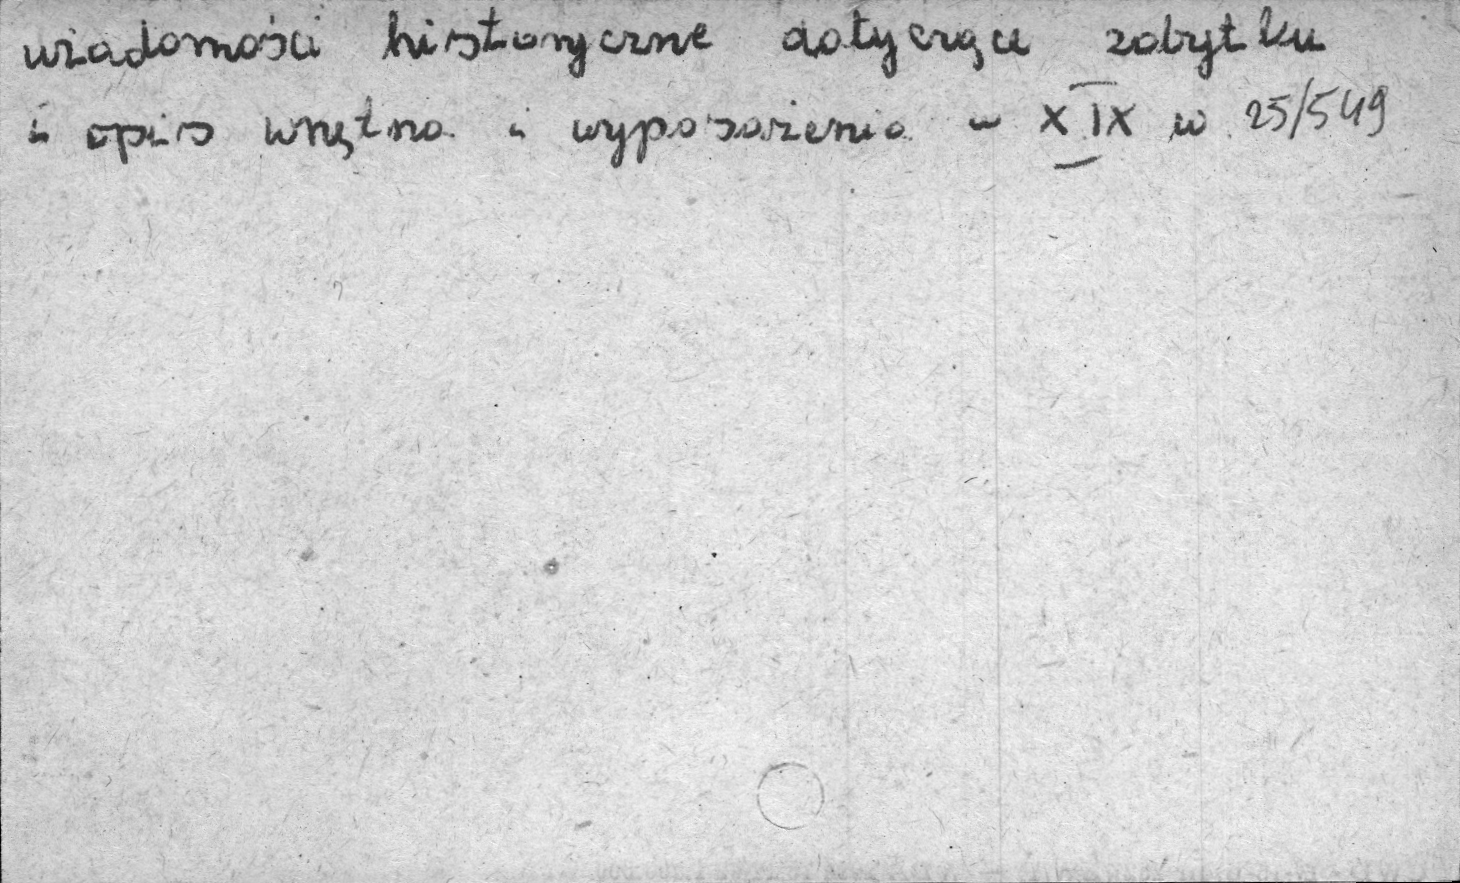 wiadomości historyczne dotyczące zabytku
i opis wnętrza i wyposażenia w XIX w. 25/549